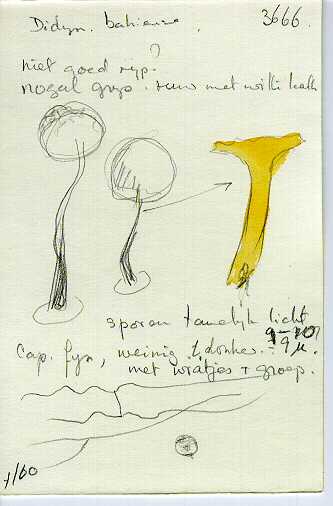 Didym. bahiense 3666.
?
niet goed ryp.
nogal grys. met
sporen tamelyk licht
9-10
Cap. fyn, weinig donker = 9 µ.
met wratjes + groep.
1/60